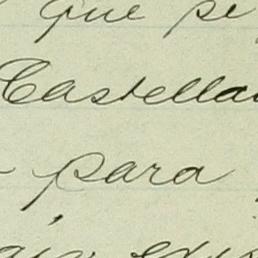 que se
Castella
para